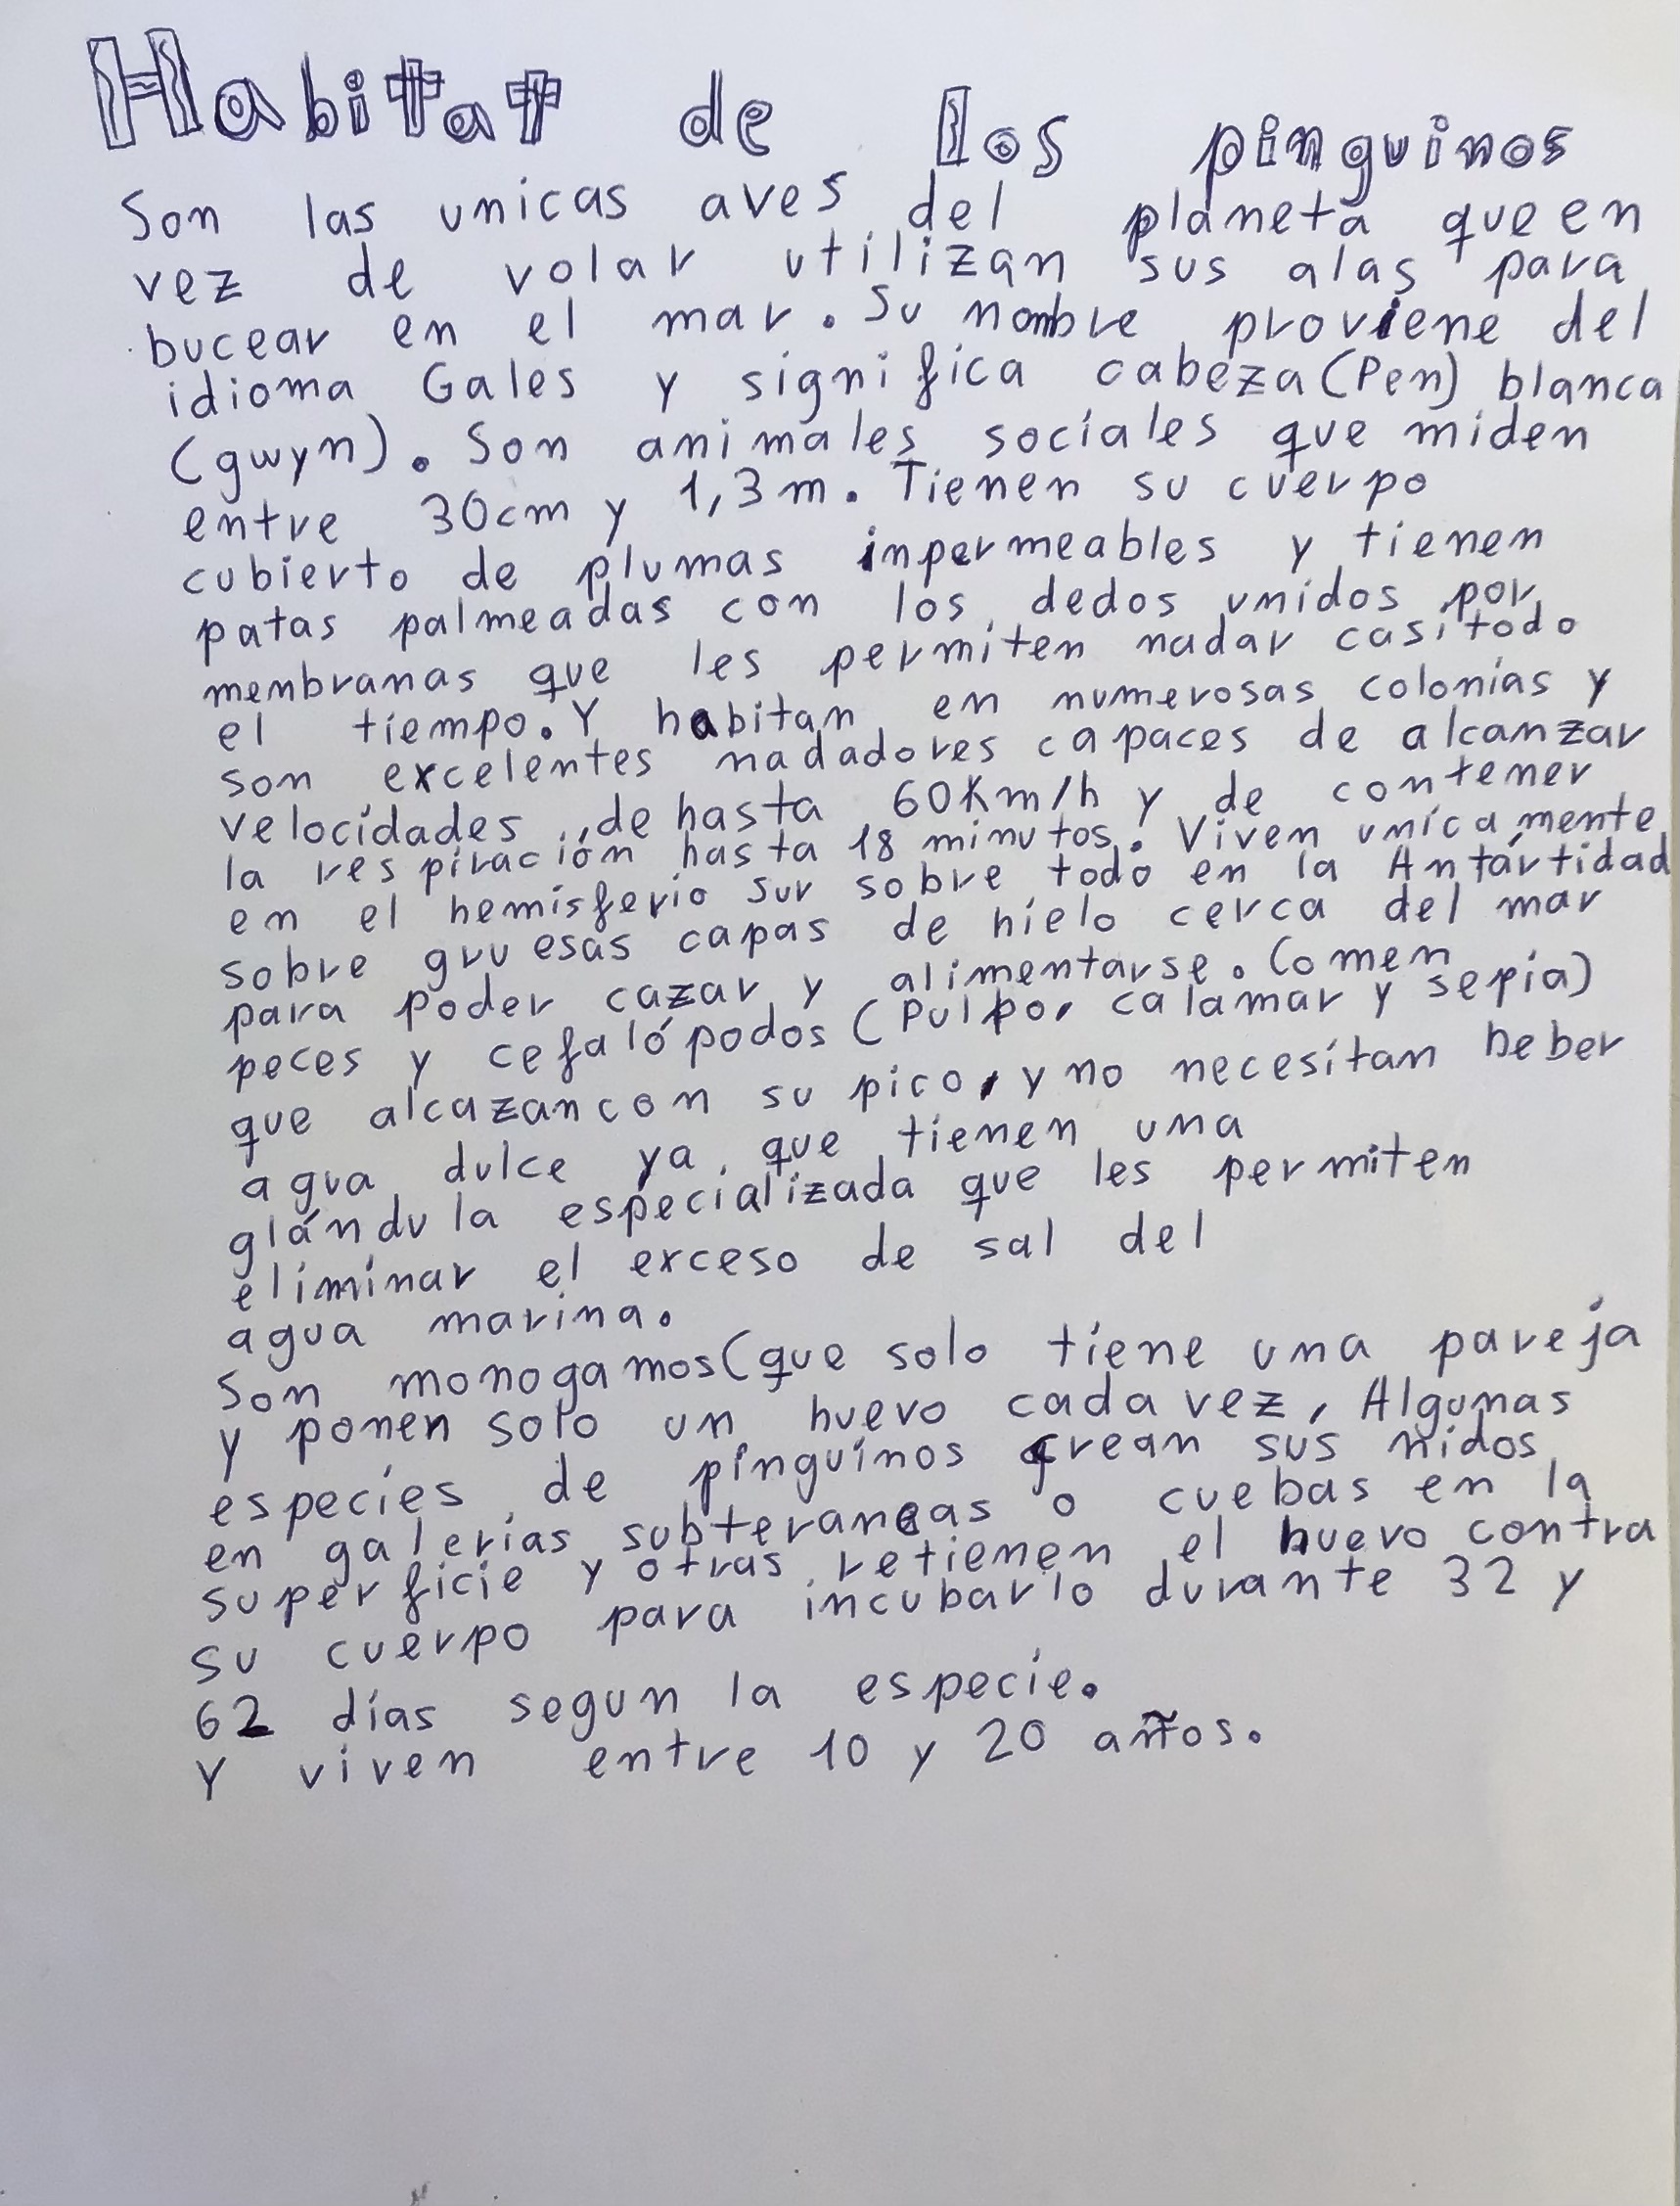 Habitat de los pinguinos
Son las unicas aves del planeta que en
vez de volar utilizan sus alas para
bucear en el mar. Su nombre proviene del
idioma Gales y significa cabeza (Pen) blanca
(gwyn). Son animales sociales que miden
entre 30cm y 1,3m. Tienen su cuerpo
cubierto de plumas inpermeables y tienen
patas palmeadas con los dedos unidos por
membranas que les permiten nadar casi todo
el tiempo. Y habitan en numerosas colonias y
son excelentes nadadores capaces de alcanzar
velocidades de hasta 60Km/h y de contener
la respiración hasta 18 minutos. Viven unicamente
en el hemisferio sur sobre todo en la Antártidad
sobre gruesas capas de hielo cerca del mar
para poder cazar y alimentarse. Comen
peces y cefalópodos (Pulpo, calamar y sepia)
que alcazan con su pico, y no necesitan beber
agua dulce ya que tienen una
glándula especializada que les permiten
eliminar el exceso de sal del
agua marina.
Son monogamos (que solo tiene una pareja
y ponen solo un huevo cada vez, Algunas
especies de pinguinos crean sus nidos
en galerias subteraneas o cuebas en la
superficie y otras retienen el huevo contra
su cuerpo para incubarlo durante 32 y
62 días segun la especie.
Y viven entre 10 y 20 años.